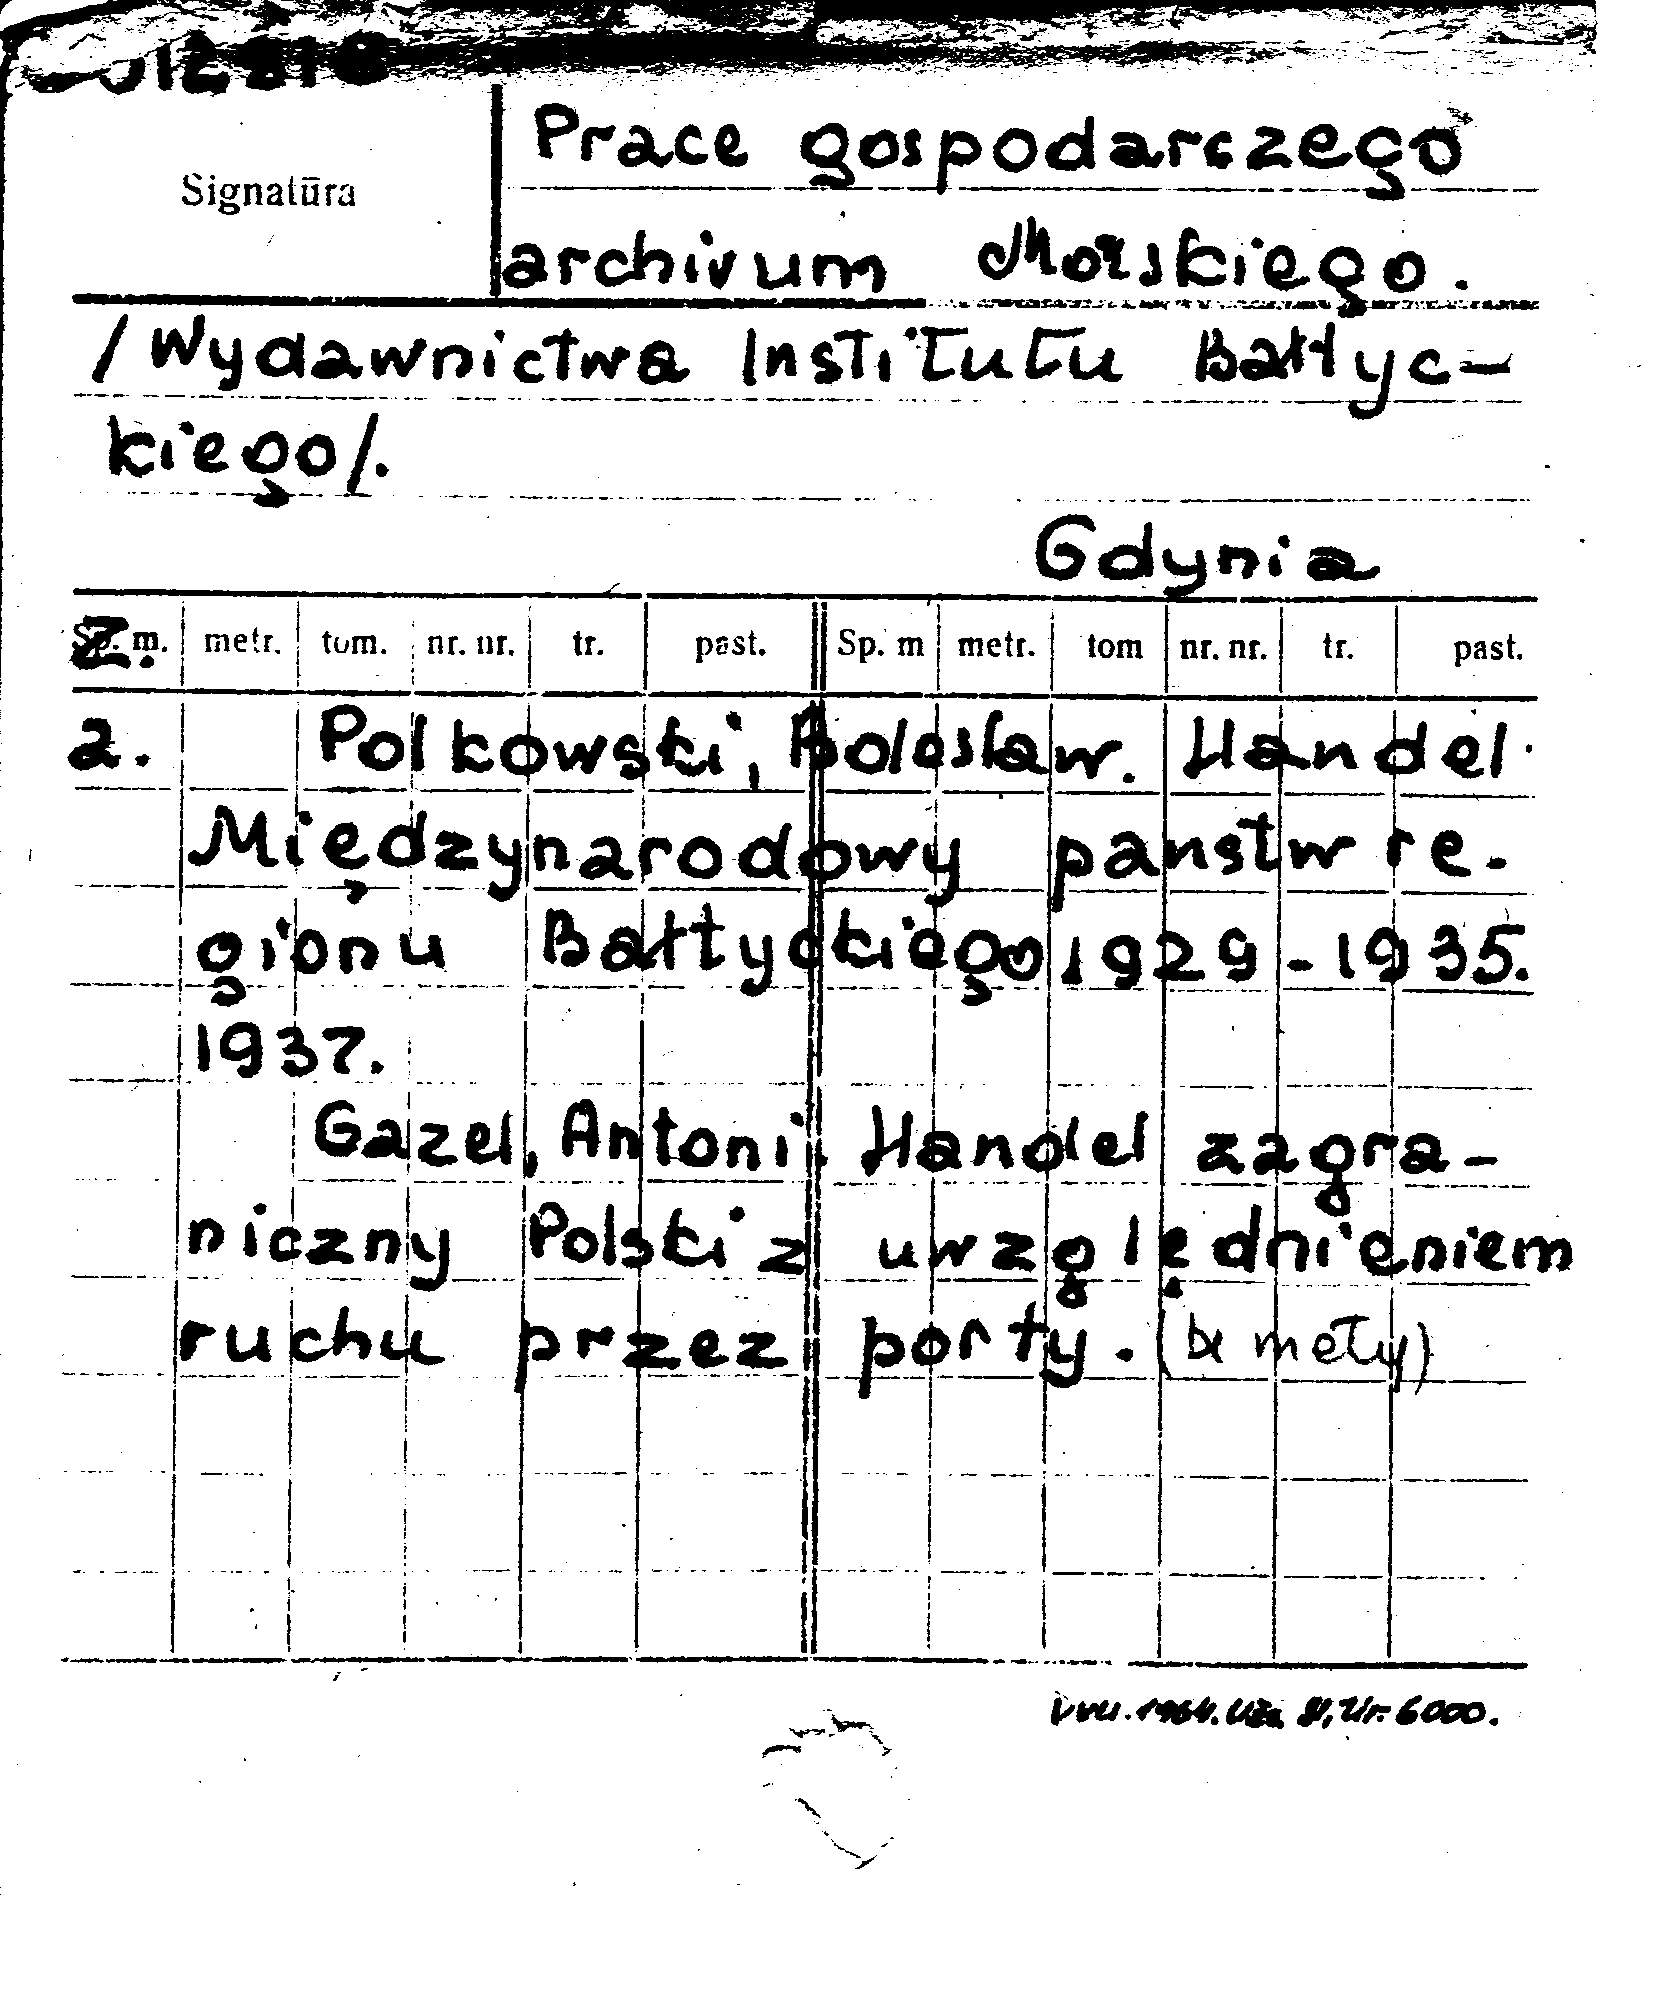 Signatūra
Prace gospodarczego
archivum Morskiego.
/Wydawnictwa Institutu Bałtyc-
kiego/.
Gdynia
Z.
Sp. m. metr. tom. nr. nr. tr. past. Sp. m metr. tom nr. nr. tr. past.
2. Polkowski, Bolesław. Handel
Międzynarodowy panstw re-
gionu Bałtyckiego 1929-1935.
1937.
Gazel, Antoni. Handel zagra-
niczny Polski z uwzględnieniem
ruchu przez porty. (be metų)
VVU. 1964. Už. Nr. 6000.